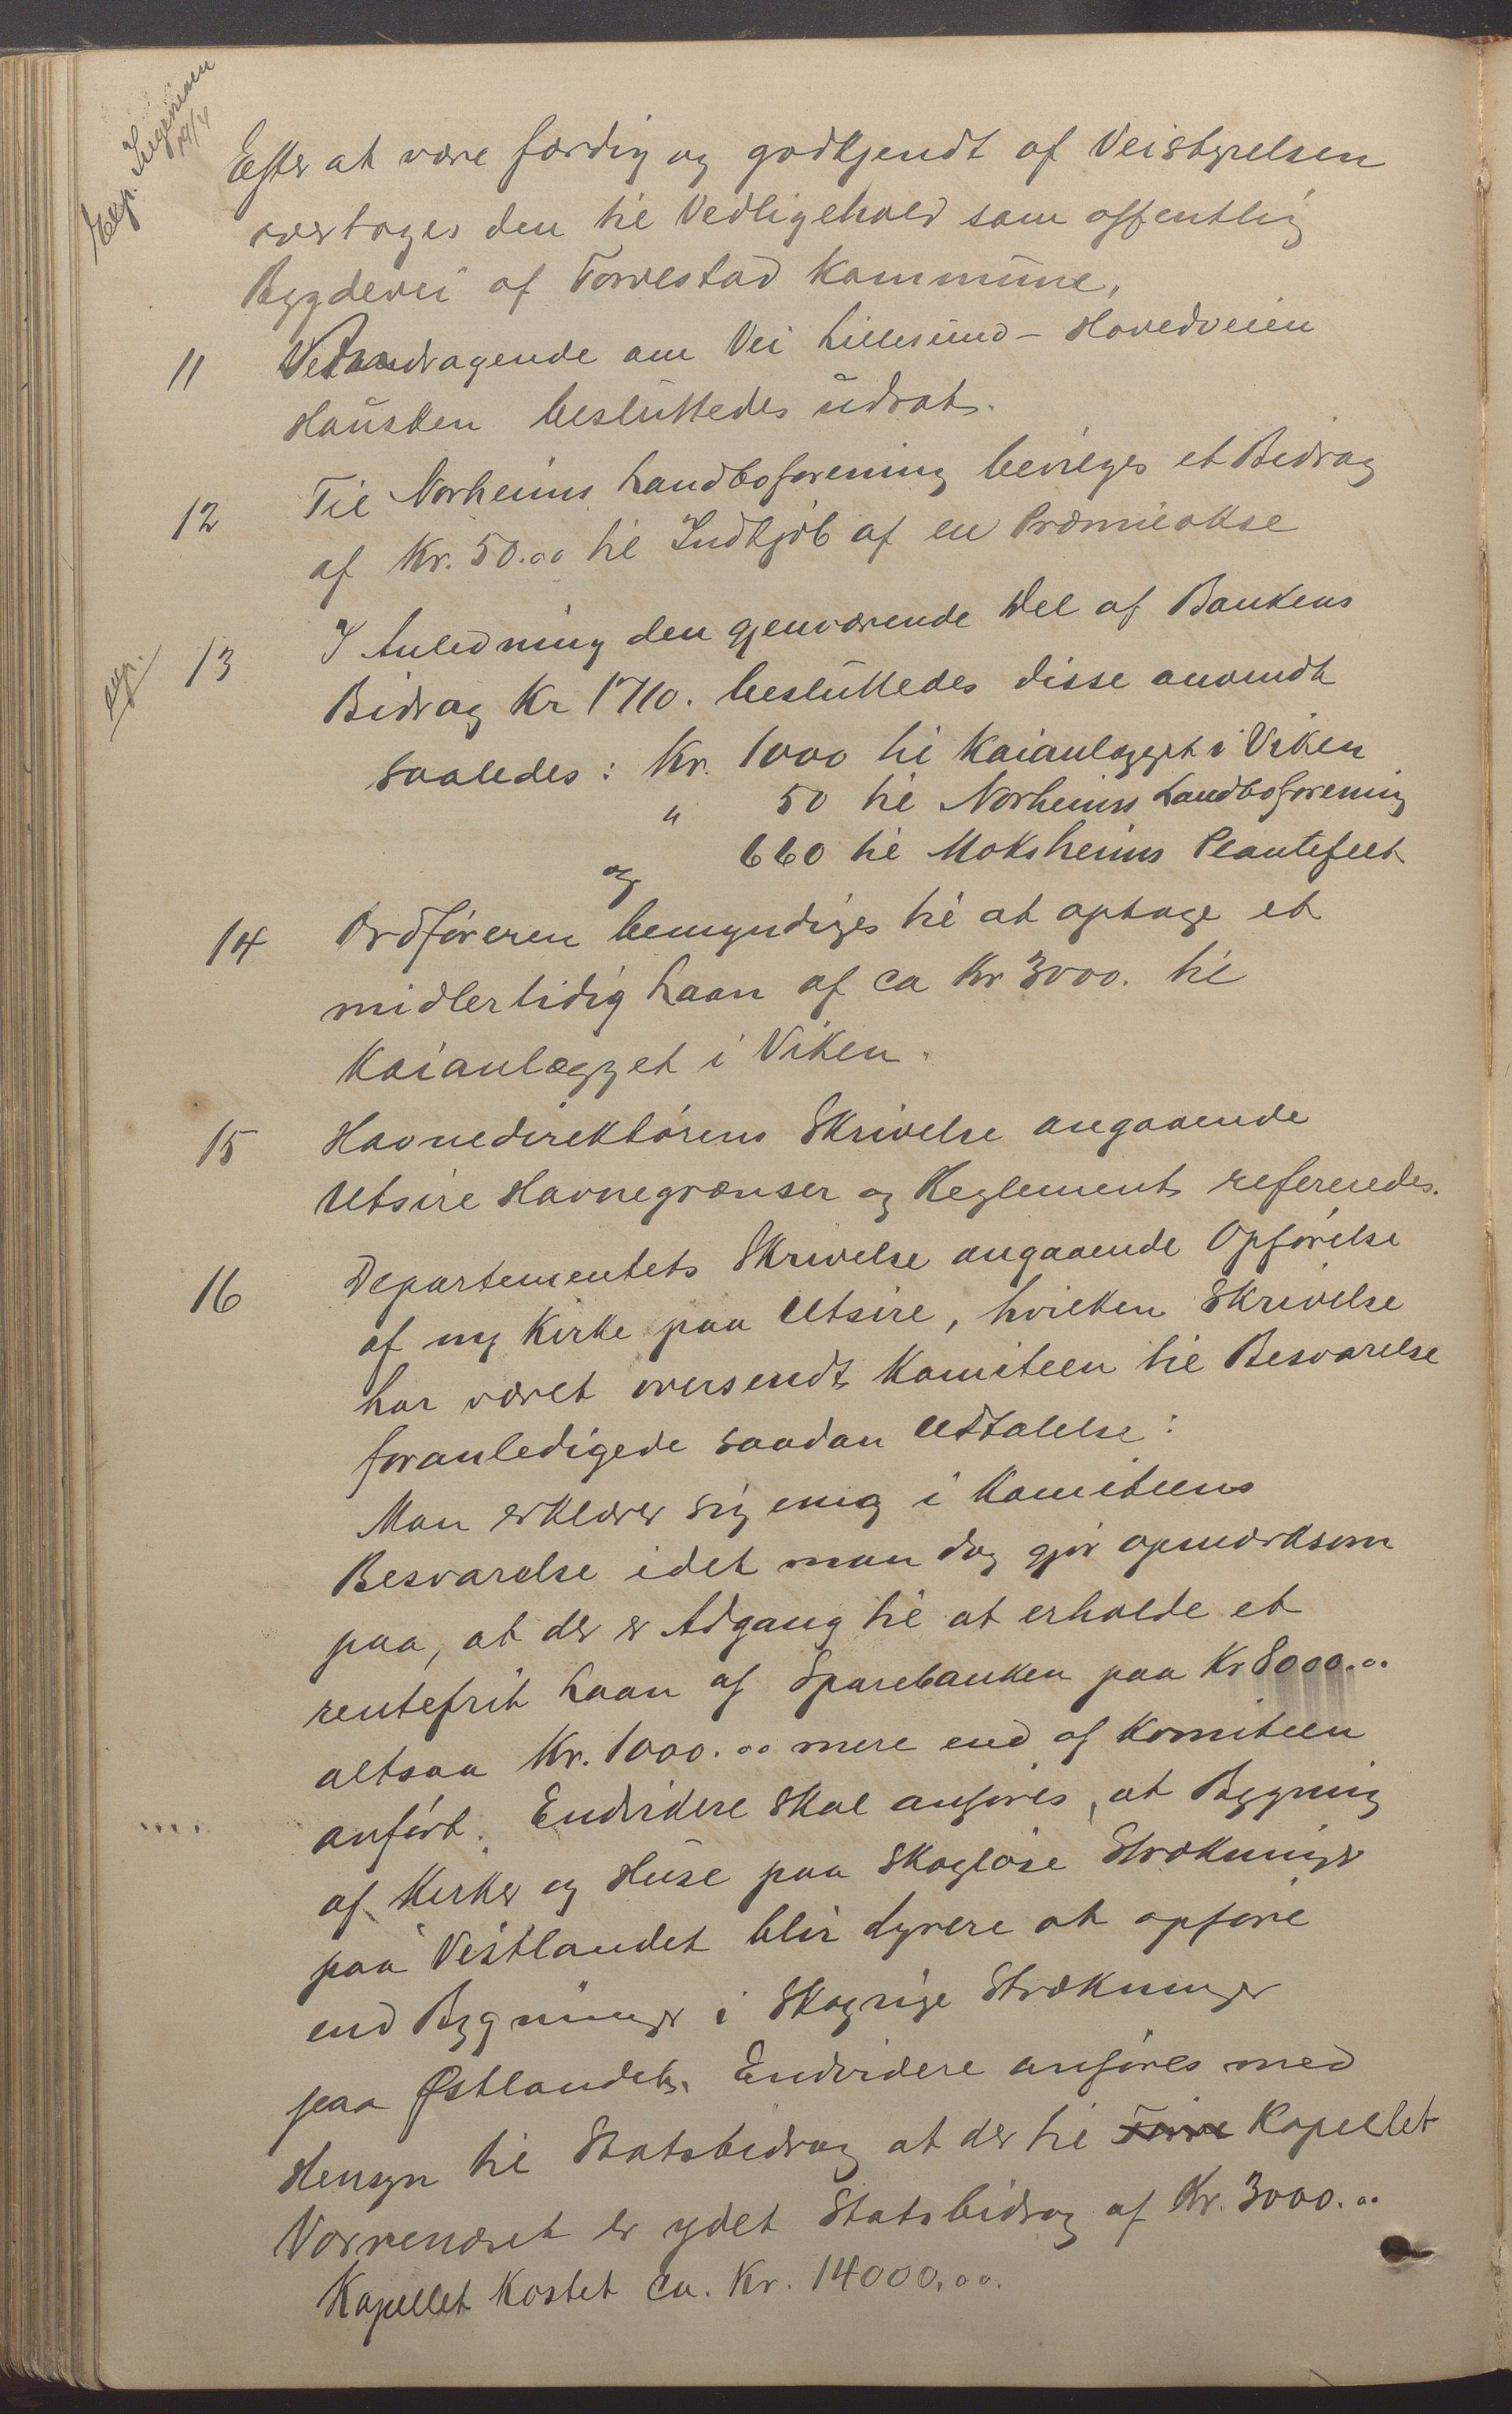 Exp. Ingeniøren
19/4
Efter at være færdig og godkjendt af Veistyrelsen
overtages den til Vedligehold som offentlig
Bygdevei af Torvestad Kommune.
11 Andragende om Vei Lillesund – Hovedveien
Hausken besluttedes udsat.
12 Til Norheims Landboforening bevilges et Bidrag
af Kr. 50.00 til Indkjøb af en Præmieokse
exp.
13 I Anledning den gjenværende Del af Bankens
Bidrag Kr 1710. besluttedes disse anvendt
saaledes: Kr. 1000 til Kaianlægget i Viken
" 50 til Norheims Landboforening
og 660 til Moksheims Plantefelt
14 Ordføreren bemyndiges til at optage et
midlertidig Laan af ca Kr 3000. til
Kaianlægget i Viken.
15 Havnedirektørens Skrivelse angaaende
Utsire Havnegrænser og Reglement refereredes.
16 Departementets Skrivelse angaaende Opførelse
af ny Kirke paa Utsire, hvilken Skrivelse
har været oversendt Komiteen til Besvarelse
foranledigede saadan Udtalelse:
Man erklærer sig enig i Komiteens
Besvarelse idet man dog gjør opmærksom
paa, at der er Adgang til at erholde et
rentefrit Laan af Sparebanken paa Kr 8000.00
altsaa Kr. 1000.00 mere end af Komiteen
anført. Endvidere skal anføres, at Bygning
af Kirker og Huse paa skogløse Strækninger
paa Vestlandet blir dyrere at opføre
end Bygninger i skogrige Strækninger
paa Østlandet. Endvidere anføres med
Hensyn til Statsbidrag at der til Kapellet
Norrenæset er ydet Statsbidrag af Kr. 3000.00
Kapellet kostet ca. Kr. 14000.00.